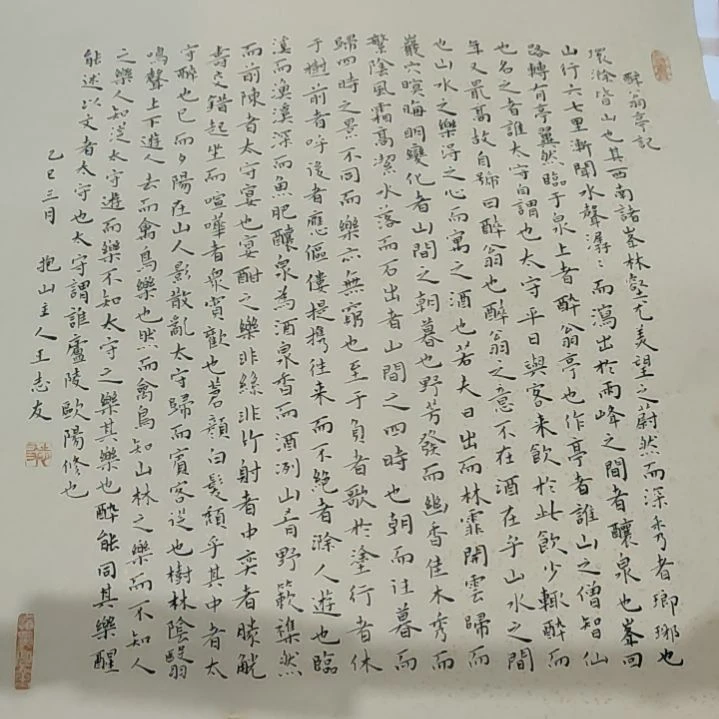 醉翁亭記
環滁皆山也其西南諸峯林壑尤美望之蔚然而深秀者瑯琊也
山行六七里漸聞水聲潺〻而瀉出於兩峰之間者釀泉也峯回
路轉有亭翼然臨于泉上者醉翁亭也作亭者誰山之僧智仙
也名之者誰太守自謂也太守平日與客来飲於此飲少輒醉而
年又最高故自號曰醉翁也醉翁之意不在酒在乎山水之間
也山水之樂得之心而寓之酒也若夫日出而林霏開雲歸而
巖穴暝晦明變化者山間之朝暮也野芳發而幽香佳木秀而
繁陰風霜高潔水落而石出者山間之四時也朝而往暮而
歸四時之景不同而樂亦無窮也至于負者歌於塗行者休
于樹前者呼後者應傴僂提攜往来而不絶者滁人遊也臨
溪而漁溪深而魚肥釀泉為酒泉香而酒洌山肴野蔌雜然
而前陳者太守宴也宴酣之樂非絲非竹射者中奕者勝觥
壽交錯起坐而喧嘩者衆賓歡也蒼顏白髮頹乎其中者太
守醉也已而夕陽在山人影散亂太守歸而賓客從也樹林陰翳
鳴聲上下遊人去而禽鳥樂也然而禽鳥知山林之樂而不知人
之樂人知從太守遊而樂不知太守之樂其樂也醉能同其樂醒
能述以文者太守也太守謂誰廬陵歐陽修也
乙巳三月 抱山主人王志友